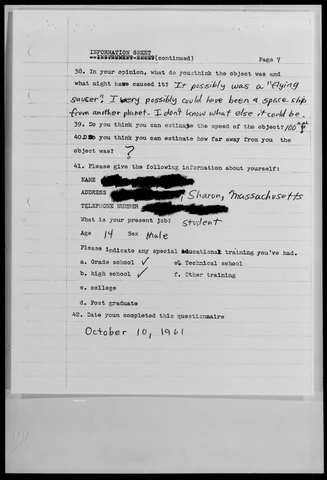 INFORMATION SHEET
--INSTRUMENT SHEET(continued) Page 7
38. In your opinion, what do you think the object was and
what might have caused it? It possibly was a "flying
saucer". I very possibly could have been a space ship
from another planet. I don't know what else it could be.
39. Do you think you can estimate the speed of the object? 100
40. Do you think you can estimate how far away from you the
object was? ?
41. Please give the following information about yourself:
NAME
ADDRESS , Sharon, Massachusetts
TELEPHONE NUMBER
What is your present job? Student
Age 14 Sex Male
Please indicate any special educational training you've had.
a. Grade school ✓ e. Technical school
b. high school ✓ f. Other training
c. college
d. Post graduate
42. Date your completed this questionnaire
October 10, 1961